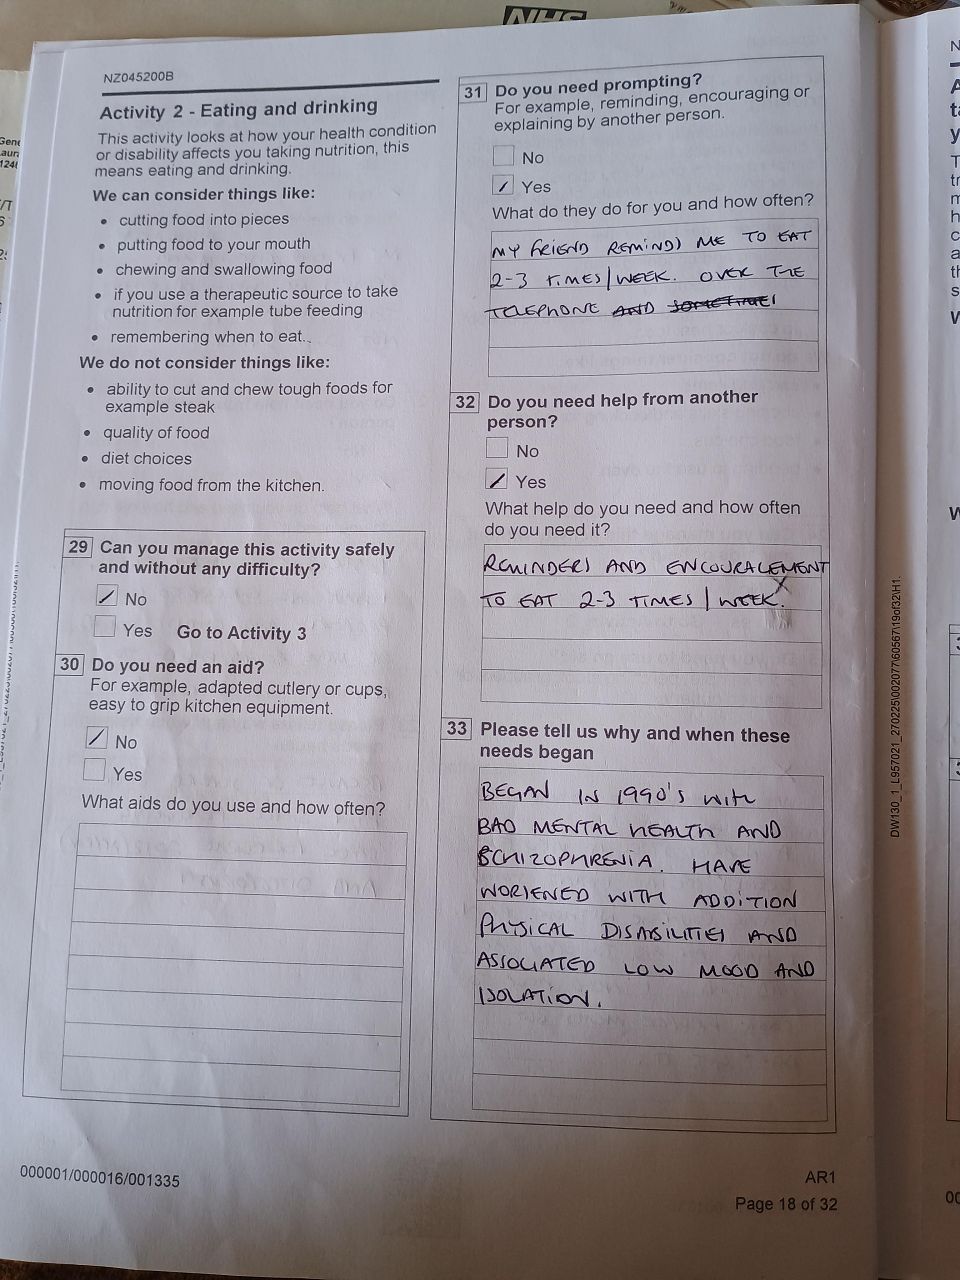 NHS
NZ045200B
Activity 2 - Eating and drinking
This activity looks at how your health condition
or disability affects you taking nutrition, this
means eating and drinking.
We can consider things like:
• cutting food into pieces
• putting food to your mouth
• chewing and swallowing food
• if you use a therapeutic source to take
nutrition for example tube feeding
• remembering when to eat.
We do not consider things like:
• ability to cut and chew tough foods for
example steak
• quality of food
• diet choices
• moving food from the kitchen.
29 Can you manage this activity safely
and without any difficulty?
No
Yes Go to Activity 3
30 Do you need an aid?
For example, adapted cutlery or cups,
easy to grip kitchen equipment.
No
Yes
What aids do you use and how often?
31 Do you need prompting?
For example, reminding, encouraging or
explaining by another person.
No
Yes
What do they do for you and how often?
MY FRIEND REMINDS ME TO EAT
2-3 TIMES/WEEK. OVER THE
TELEPHONE AND SOMETIMES
32 Do you need help from another
person?
No
Yes
What help do you need and how often
do you need it?
REMINDERS AND ENCOURAGEMENT
TO EAT 2-3 TIMES/WEEK.
33 Please tell us why and when these
needs began
BEGAN IN 1990's WITH
BAD MENTAL HEALTH AND
SCHIZOPHRENIA. HAVE
WORSENED WITH ADDITION
PHYSICAL DISABILITIES AND
ASSOCIATED LOW MOOD AND
ISOLATION.
000001/000016/001335
AR1
Page 18 of 32
DW130_1_L957021_270225\002077\60567\19of32\H1.